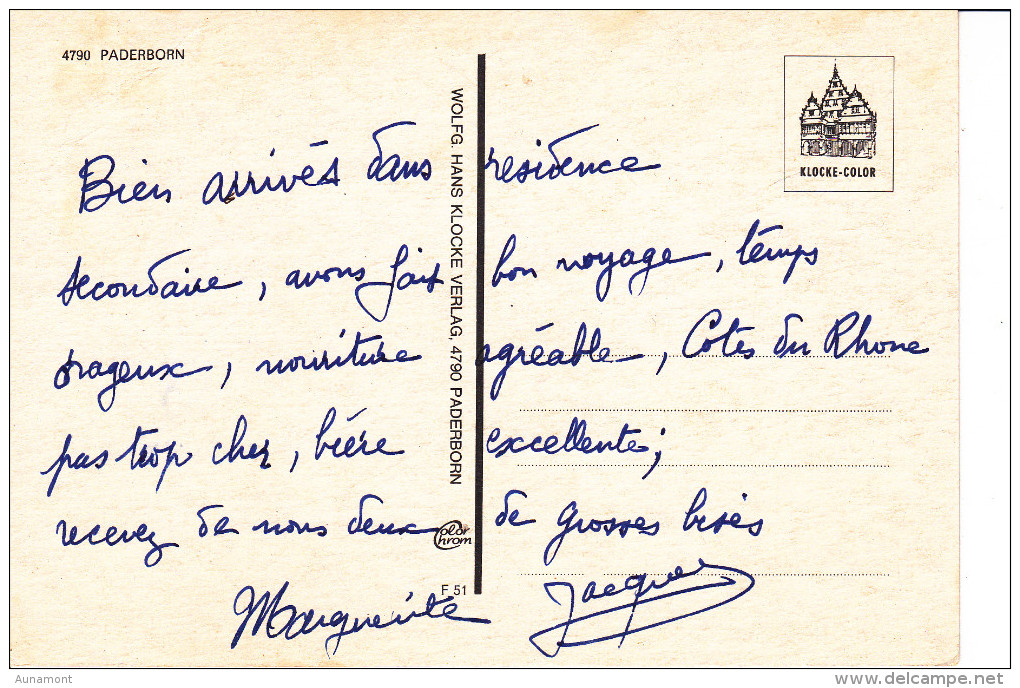 4790 PADERBORN
KLOCKE-COLOR
WOLFG. HANS KLOCKE VERLAG, 4790 PADERBORN
Bien arrivés dans résidence
secondaire, avons fait bon voyage, temps
orageux, nourriture agréable, Côtes du Rhone
pas trop cher, bière excellente;
recevez de nous deux de grosses bises
Color Chrom
F 51
Marguerite Jacques
Aunamont
delcampe.net